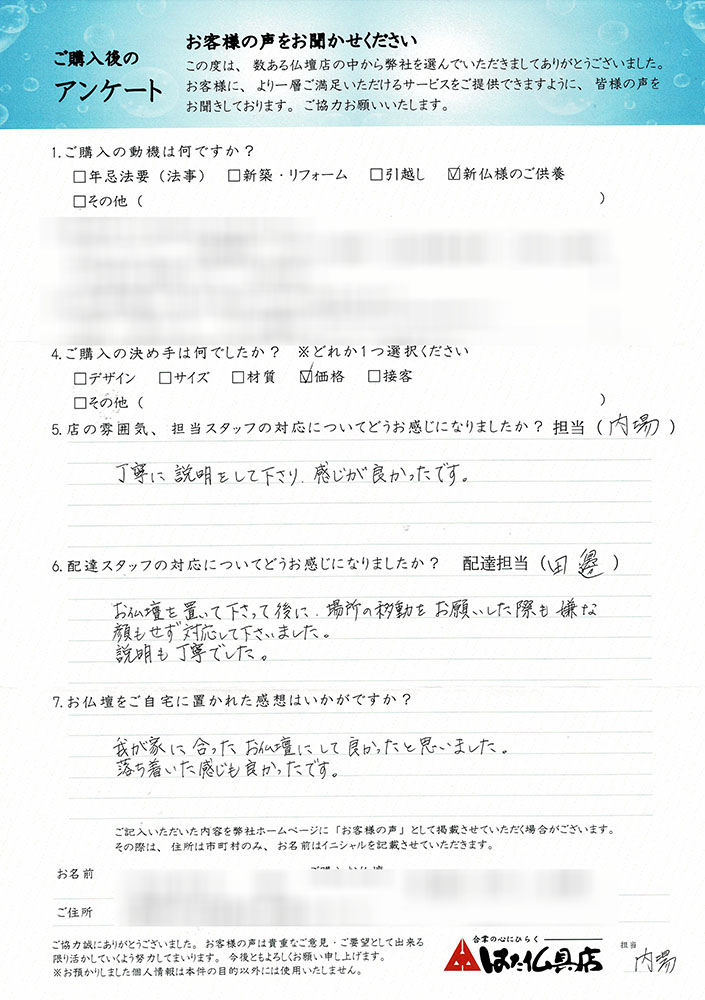 ご購入後の
アンケート
お客様の声をお聞かせください
この度は、数ある仏壇店の中から弊社を選んでいただきましてありがとうございました。
お客様に、より一層ご満足いただけるサービスをご提供できますように、皆様の声を
お聞きしております。ご協力お願いいたします。
1.ご購入の動機は何ですか？
□年忌法要（法事） □新築・リフォーム □引越し ☑新仏様のご供養
□その他（ ）
4.ご購入の決め手は何でしたか？ ※どれか1つ選択ください
□デザイン □サイズ □材質 ☑価格 □接客
□その他（ ）
5.店の雰囲気、担当スタッフの対応についてどうお感じになりましたか？担当（内場）
丁寧に説明をして下さり、感じが良かったです。
6.配達スタッフの対応についてどうお感じになりましたか？ 配達担当（田邉）
お仏壇を置いて下さって後に、場所の移動をお願いした際も嫌な
顔もせず対応して下さいました。
説明も丁寧でした。
7.お仏壇をご自宅に置かれた感想はいかがですか？
我が家に合ったお仏壇にして良かったと思いました。
落ち着いた感じも良かったです。
ご記入いただいた内容を弊社ホームページに「お客様の声」として掲載させていただく場合がございます。
その際は、住所は市町村のみ、お名前はイニシャルを記載させていただきます。
お名前
ご住所
ご協力誠にありがとうございました。お客様の声は貴重なご意見・ご要望として出来る
限り活かしていくよう努力してまいります。今後ともよろしくお願い申し上げます。
※お預かりしました個人情報は本件の目的以外には使用いたしません。
合掌の心にひらく
はた仏具店
担当
内場